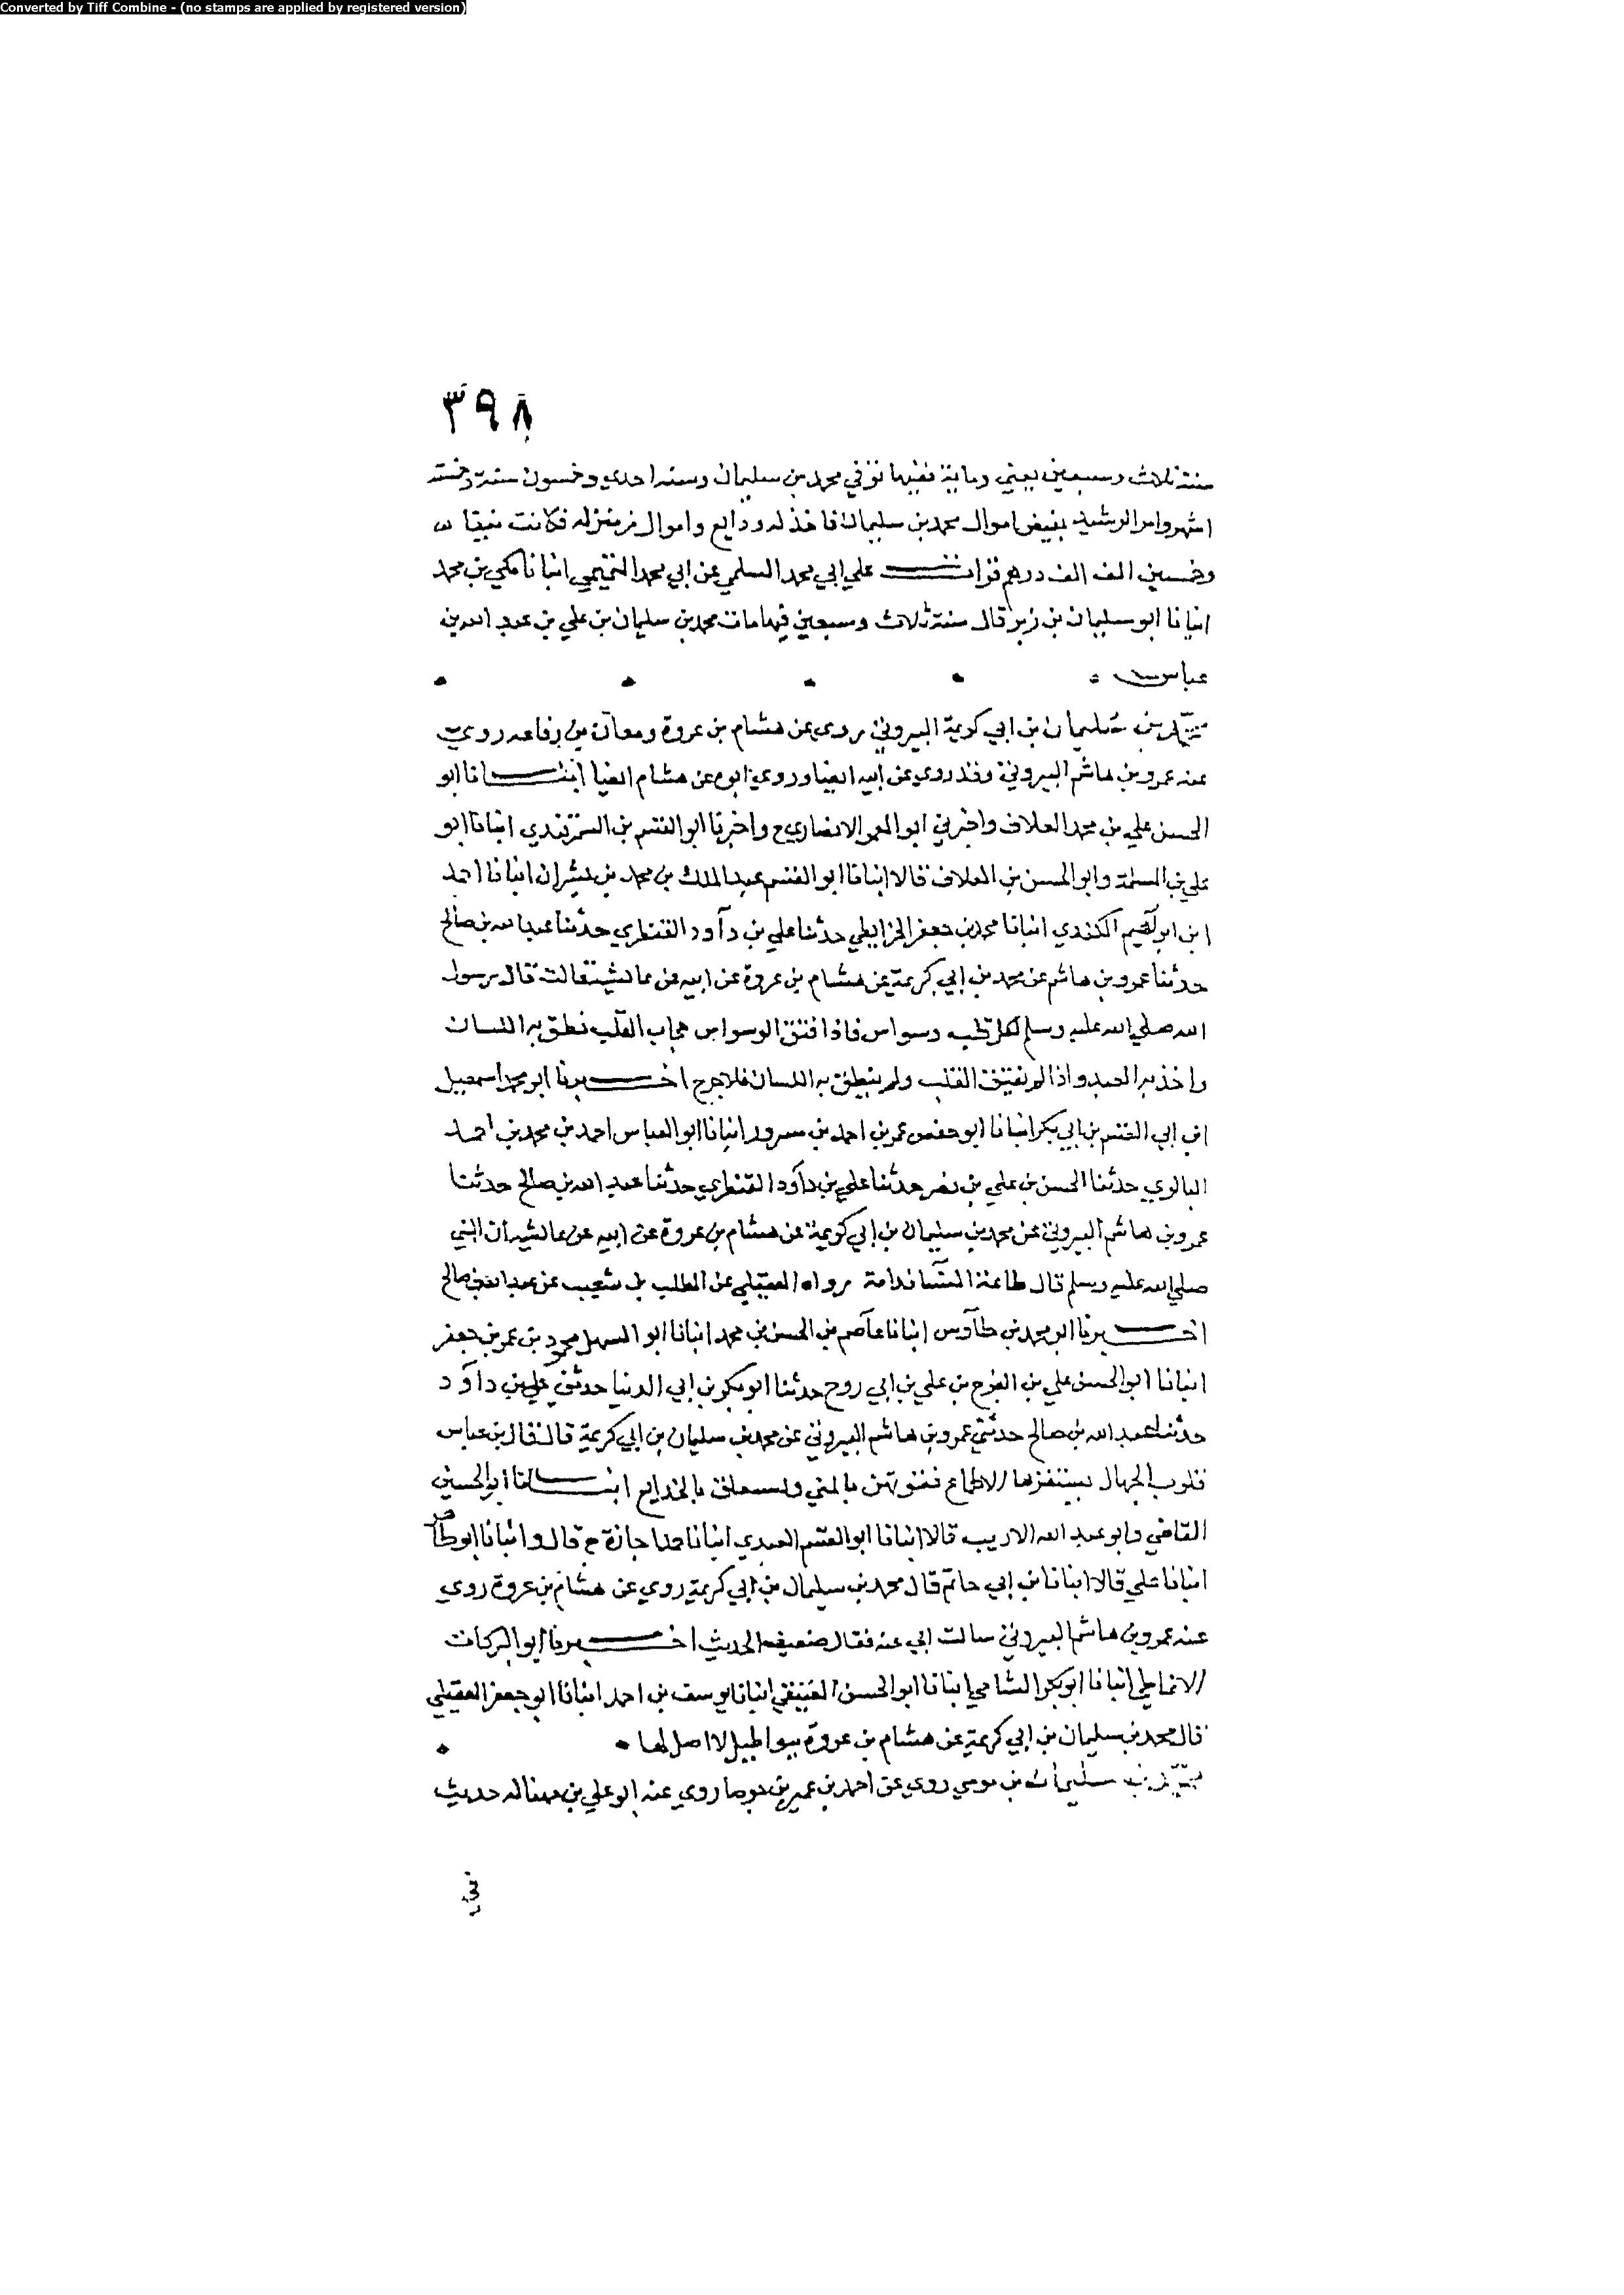 Converted by Tiff Combine - (no stamps are applied by registered version)
٣٩٨
سنة ثلاث وسبعين يعني وماية ففيها توفي محمد بن سليمان وسنه احدى وخمسون سنة وخمسة
اشهر وامر الرشيد بقبض اموال محمد بن سليمان فاخذ له ودايع واموال من منزله فكانت نيفا
وخمسين الف الف درهم قرات على ابي محمد السلمي عن ابي محمد التميمي انبانا مكي بن محمد
انبانا ابو سليمان بن زبر قال سنة ثلاث وسبعين فيها مات محمد بن سليمان بن علي بن عبد الله بن
عباس
محمد بن سليمان بن ابي كريمة البيروتي روى عن هشام بن عروة ومعان بن رفاعه روى
عنه عمرو بن هاشم البيروتي وقد روي عن ابيه ايضا وروى ابوه عن هشام ايضا انبانا ابو
الحسن علي بن محمد العلاف واخبرني ابو المعمر الانصاري ح واخبرنا ابو القسم بن السمرقندي انبانا ابو
علي بن المسلمة وابو الحسن بن العلاف قالا انبانا ابو القسم عبد الملك بن محمد بن بشران انبانا احمد
ابن ابراهيم الكندي انبانا محمد بن جعفر الخرايطي حدثنا علي بن داود القنطري حدثنا عبد الله بن صالح
حدثنا عمرو بن هاشم عن محمد بن ابي كريمة عن هشام بن عروة عن ابيه عن عائشة قالت قال رسول
الله صلي الله عليه وسلم لكل قلب وسواس فاذا فتق الوسواس حجاب القلب نطق به اللسان
واخذ به العبد واذا لم يفتق القلب ولم ينطق به اللسان فلا حرج اخبرنا ابو محمد اسمعيل
ابن ابي القسم بن ابي بكر انبانا ابو حفص عمر بن احمد بن مسرور انبانا ابو العباس احمد بن محمد بن احمد
البالوي حدثنا الحسن بن علي بن نصر حدثنا علي بن داود القنطري حدثنا عبد الله بن صالح حدثنا
عمرو بن هاشم البيروتي عن محمد بن سليمان بن ابي كريمة عن هشام بن عروة عن ابيه عن عائشه ان النبي
صلي الله عليه وسلم قال طاعة النسآ ندامة رواه العقيلي عن المطلب بن شعيب عن عبد الله بن صالح
اخبرنا ابو محمد بن طاوس انبانا عاصم بن الحسن بن محمد انبانا ابو السهل محمود بن عمر بن جعفر
انبانا ابو الحسن علي بن الفرج بن علي بن ابي روح حدثنا ابو بكر بن ابي الدنيا حدثني علي بن داود
حدثنا عبد الله بن صالح حدثني عمرو بن هاشم البيروتي عن محمد بن سليمان بن ابي كريمة قال قال بن عباس
قلوب الجهال تستفزها الاطماع بالمني بالخدايع انبانا ابو الحسين
القاضي وابو عبد الله الاديب قالا انبانا ابو القسم العبدي انبانا حمد اجازة ح قال وانبانا ابو طاهر
انبانا علي قالا انبانا بن ابي حاتم قال محمد بن سليمان بن ابي كريمة روي عن هشام بن عروة روي
عنه عمرو بن هاشم البيروتي سالت ابي عنه فقال ضعيف الحديث اخبرنا ابو البركات
الانماطي انبانا ابو بكر الشامي انبانا ابو الحسن العتيقي انبانا يوسف بن احمد انبانا ابو جعفر العقيلي
قال محمد بن سليمان بن ابي كريمة عن هشام بن عروة ببواطيل لا اصل لها
محمد بن سليمان بن موسي روي عن احمد بن عمير بن جوصا روي عنه ابو علي بن مهنا له حديث
في